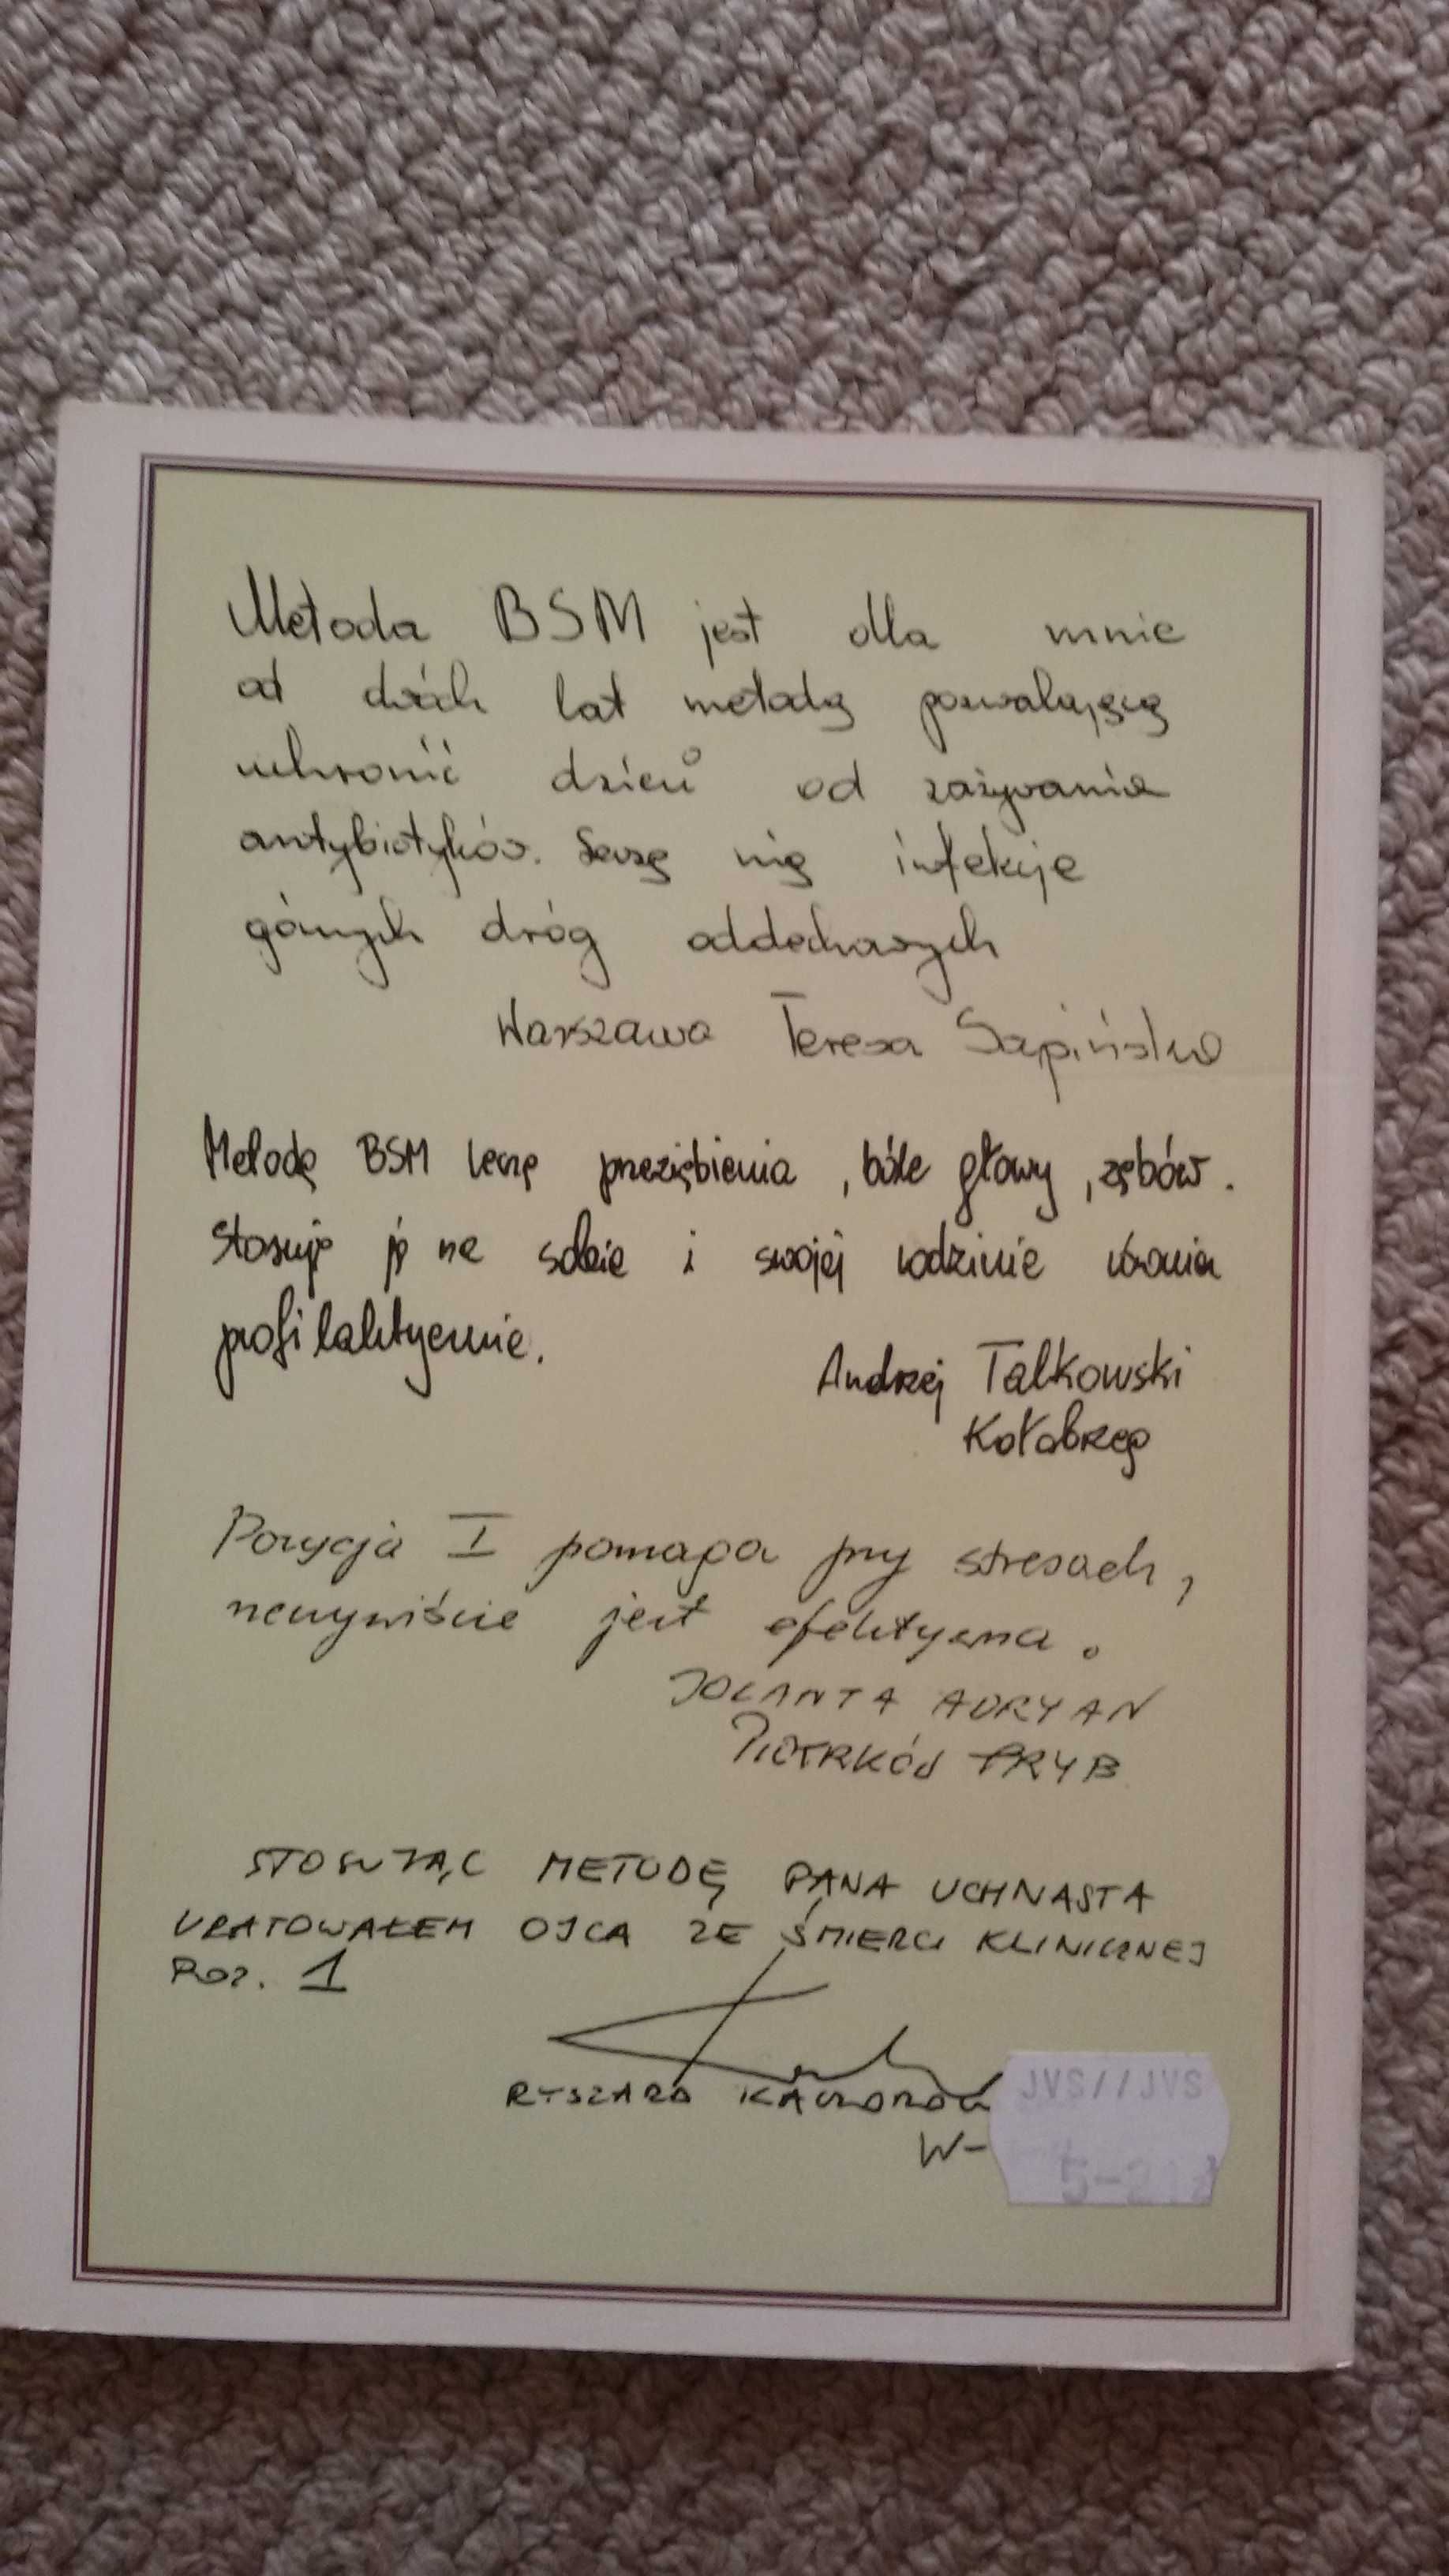 Metoda BSM jest dla mnie
od dwóch lat metodą pozwalającą
uchronić dzieci od zażywania
antybiotyków. Leczę nią infekcje
górnych dróg oddechowych
Warszawa Teresa Sapińska
Metodą BSM leczę przeziębienia, bóle głowy, zębów.
Stosuję ją na sobie i swojej rodzinie równie
profilaktycznie.
Andrzej Talkowski
Kołobrzeg
Pozycja I pomaga przy stresach,
rzeczywiście jest efektywna.
JOLANTA ADRYAN
PIOTRKÓW TRYB
STOSUJĄC METODĘ PANA UCHNASTA
URATOWAŁEM OJCA ZE ŚMIERCI KLINICZNEJ
POZ. 1
RYSZARD
W-
JVS//JVS